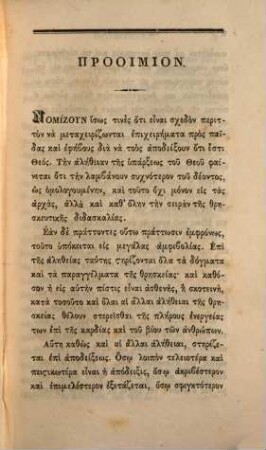 ΠΡΟΟΙΜΙΟΝ.
ΝΟΜΙΖΟΥΝ ἴσως τινὲς ὅτι εἶναι σχεδὸν περιτ-
τὸν νὰ μεταχειρίζωνται ἐπιχειρήματα πρὸς παῖ-
δας καὶ ἐφήβους διὰ νὰ τοὺς ἀποδείξουν ὅτι ἐστὶ
Θεός. Τὴν ἀλήθειαν τῆς ὑπάρξεως τοῦ Θεοῦ φαί-
νεται ὅτι τὴν λαμβάνουν συχνότερον τοῦ δέοντος,
ὡς ὁμολογουμένην, καὶ τοῦτο ὄχι μόνον εἰς τὰς
ἀρχὰς, ἀλλὰ καὶ καθ' ὅλην τὴν σειρὰν τῆς θρη-
σκευτικῆς διδασκαλίας.
Ἐὰν δὲ πράττοντες οὕτω πράττωσιν ἐμφρόνως,
τοῦτο ὑπόκειται εἰς μεγάλας ἀμφιβολίας. Ἐπὶ
τῆς ἀληθείας ταύτης στηρίζονται ὅλα τὰ δόγματα
καὶ τὰ παραγγέλματα τῆς θρησκείας· καὶ καθό-
σον ἡ εἰς αὐτὴν πίστις εἶναι ἀσθενὴς, ἢ σκοτεινὴ,
κατὰ τοσοῦτο καὶ ὅλαι αἱ ἄλλαι ἀλήθειαι τῆς θρη-
σκείας θέλουν στερεῖσθαι τῆς πλήρους ἐνεργείας
των ἐπὶ τῆς καρδίας καὶ τοῦ βίου τῶν ἀνθρώπων.
Αὕτη καθὼς καὶ αἱ ἄλλαι ἀλήθειαι, στηρίζε-
ται ἐπὶ ἀποδείξεως. Ὅσῳ λοιπὸν τελειοτέρα καὶ
πειστικωτέρα εἶναι ἡ ἀπόδειξις, ὅσῳ ἀκριβέστερον
καὶ ἐπιμελέστερον ἐξετάζεται, ὅσῳ σφιγκτότερον